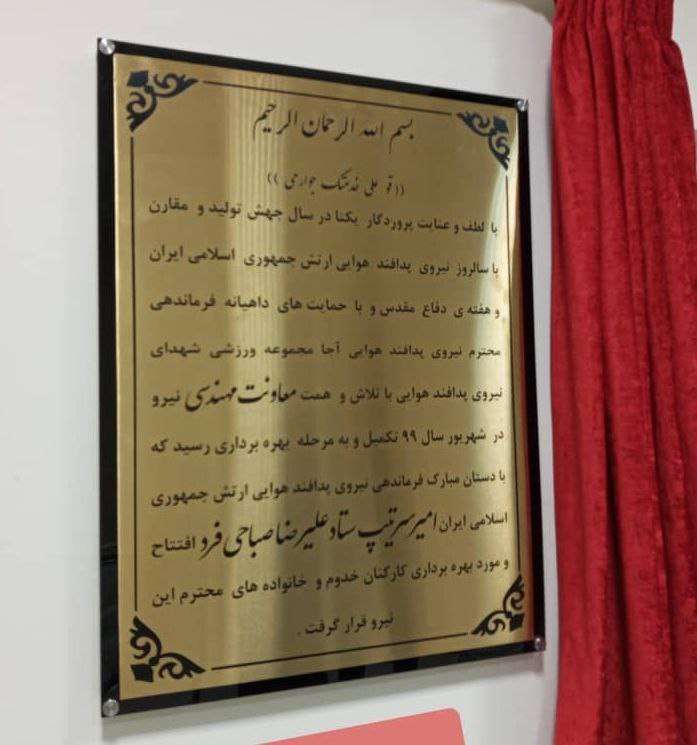 بسم الله الرحمان الرحیم
((قو علی خدمتک جوارحی))
با لطف و عنایت پروردگار یکتا در سال جهش تولید و مقارن
با سالروز نیروی پدافند هوایی ارتش جمهوری اسلامی ایران
و هفته ی دفاع مقدس و با حمایت های داهیانه فرماندهی
محترم نیروی پدافند هوایی آجا مجموعه ورزشی شهدای
نیروی پدافند هوایی با تلاش و همت معاونت مهندسی نیرو
در شهریور سال ۹۹ تکمیل و به مرحله بهره برداری رسید که
با دستان مبارک فرماندهی نیروی پدافند هوایی ارتش جمهوری
اسلامی ایران امیر سرتیپ ستاد علیرضا صباحی فرد افتتاح
و مورد بهره برداری کارکنان خدوم و خانواده های محترم این
نیرو قرار گرفت .